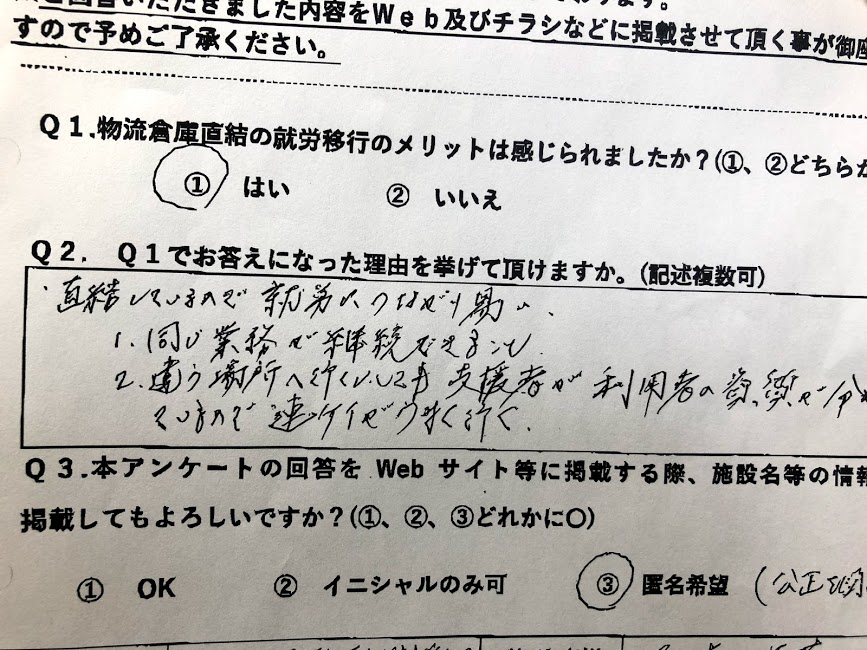 回答いただきました内容をＷｅｂ及びチラシなどに掲載させて頂く事が御座
すので予めご了承ください。
Ｑ１.物流倉庫直結の就労移行のメリットは感じられましたか？(①、②どちらか
① はい ② いいえ
Ｑ２． Ｑ１でお答えになった理由を挙げて頂けますか。(記述複数可)
・直結しているので就労につながり易い、
1. 同じ業務で継続できること
2. 違う場所へ行くにしても支援者が利用者の資質が分か
ているので連ケイがうまく行く.
Ｑ３.本アンケートの回答を Web サイト等に掲載する際、施設名等の情報
掲載してもよろしいですか？(①、②、③どれかに〇)
① OK ② イニシャルのみ可 ③ 匿名希望 (公正